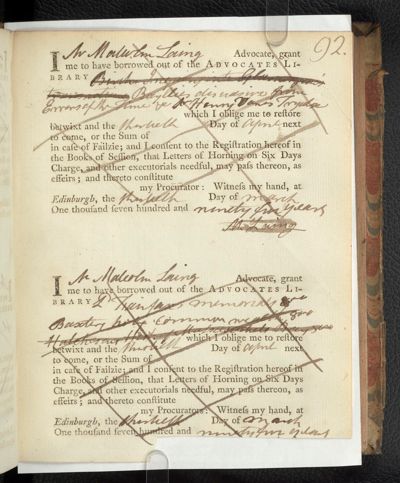 92.
I Mr Malcolm Laing Advocate, grant
me to have borrowed out of the ADVOCATES LI-
BRARY
Baillies disuasive from
Errors of the time & Sr Henry Vanes Tryal
which I oblige me to reſtore
betwixt and the thirtieth Day of April next
to come, or the Sum of
in caſe of Failzie; and I conſent to the Regiſtration hereof in
the Books of Seſſion, that Letters of Horning on Six Days
Charge, and other executorials needful, may paſs thereon, as
effeirs; and thereto conſtitute
my Procurator: Witneſs my hand, at
Edinburgh, the thirtieth Day of March
One thouſand ſeven hundred and ninety five years
M Laing
I Mr Malcolm Laing Advocate, grant
me to have borrowed out of the ADVOCATES LI-
BRARY memorials 8vo
Baxters holy Common wealth 8vo
which I oblige me to reſtore
betwixt and the thirtieth Day of April next
to come, or the Sum of
in caſe of Failzie; and I conſent to the Regiſtration hereof in
the Books of Seſſion, that Letters of Horning on Six Days
Charge, and other executorials needful, may paſs thereon, as
effeirs; and thereto conſtitute
my Procurators: Witneſs my hand, at
Edinburgh, the thirtieth Day of March
One thouſand ſeven hundred and ninety five years